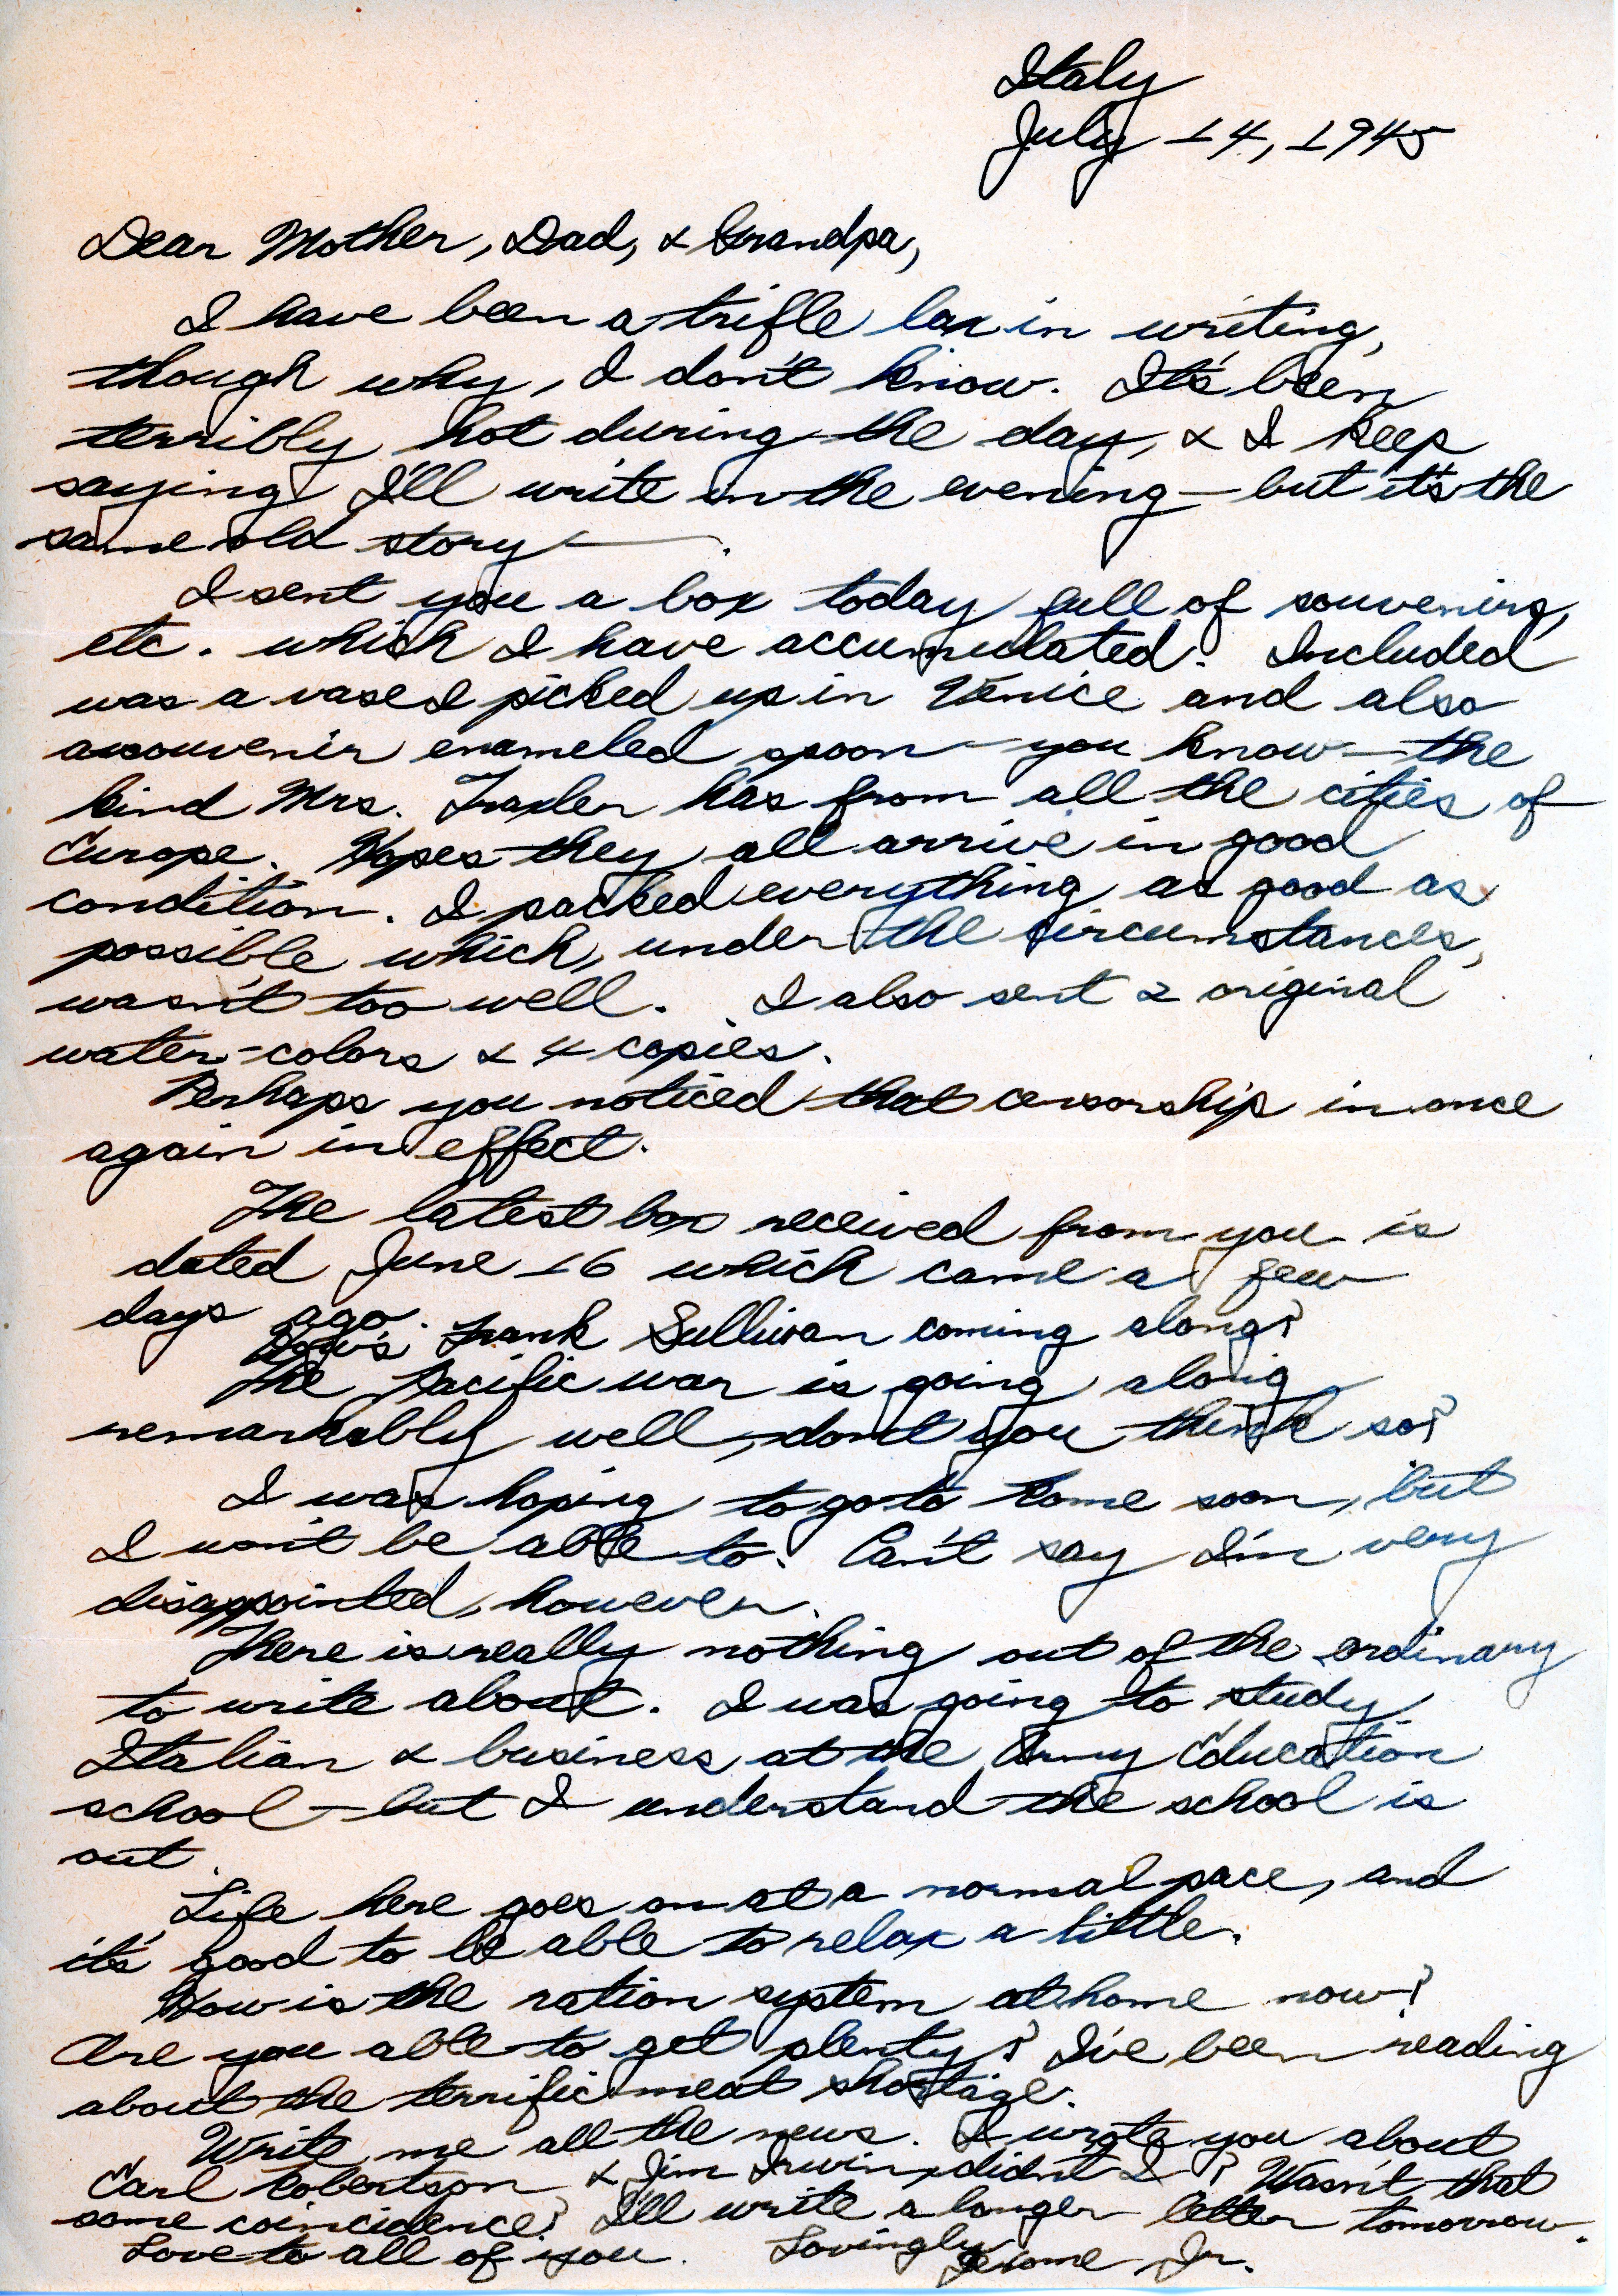 Italy
July 14, 1945
Dear Mother, Dad, & Grandpa,
I have been a trifle lax in writing,
though why, I don't know. It's been
terribly hot during the day, & I keep
saying I'll write in the evening — but it's the
same old story —.
I sent you a box today full of souvenirs,
etc. which I have accumulated. Included
was a vase I picked up in Venice and also
a souvenir enameled spoon — you know — the
kind Mrs. has from all the cities of
Europe. Hopes they all arrive in good
condition. I packed everything as good as
possible which, under the circumstances,
wasn't too well. I also sent 2 original
water-colors & 4 copies.
Perhaps you noticed that censorship in once
again in effect.
The latest box received from you is
dated June 16 which came a few
days ago.
How's Frank Sullivan coming along?
The Pacific war is going along
remarkably well, don't you think so?
I was hoping to go to Rome soon, but
I won't be able to. Can't say I'm very
disappointed, however.
There is really nothing out of the ordinary
to write about. I was going to study
Italian & business at the Army Education
school — but I understand the school is
out.
Life here goes on at a normal pace, and
it's good to be able to relax a little.
How is the ration system at home now?
Are you able to get plenty? I've been reading
about the terrific meat shortage.
Write me all the news. I wrote you about
Carl Robertson & Jim Irwin, didn't I? Wasn't that
some coincidence? I'll write a longer letter tomorrow.
Love to all of you. Lovingly
Jerome Jr.